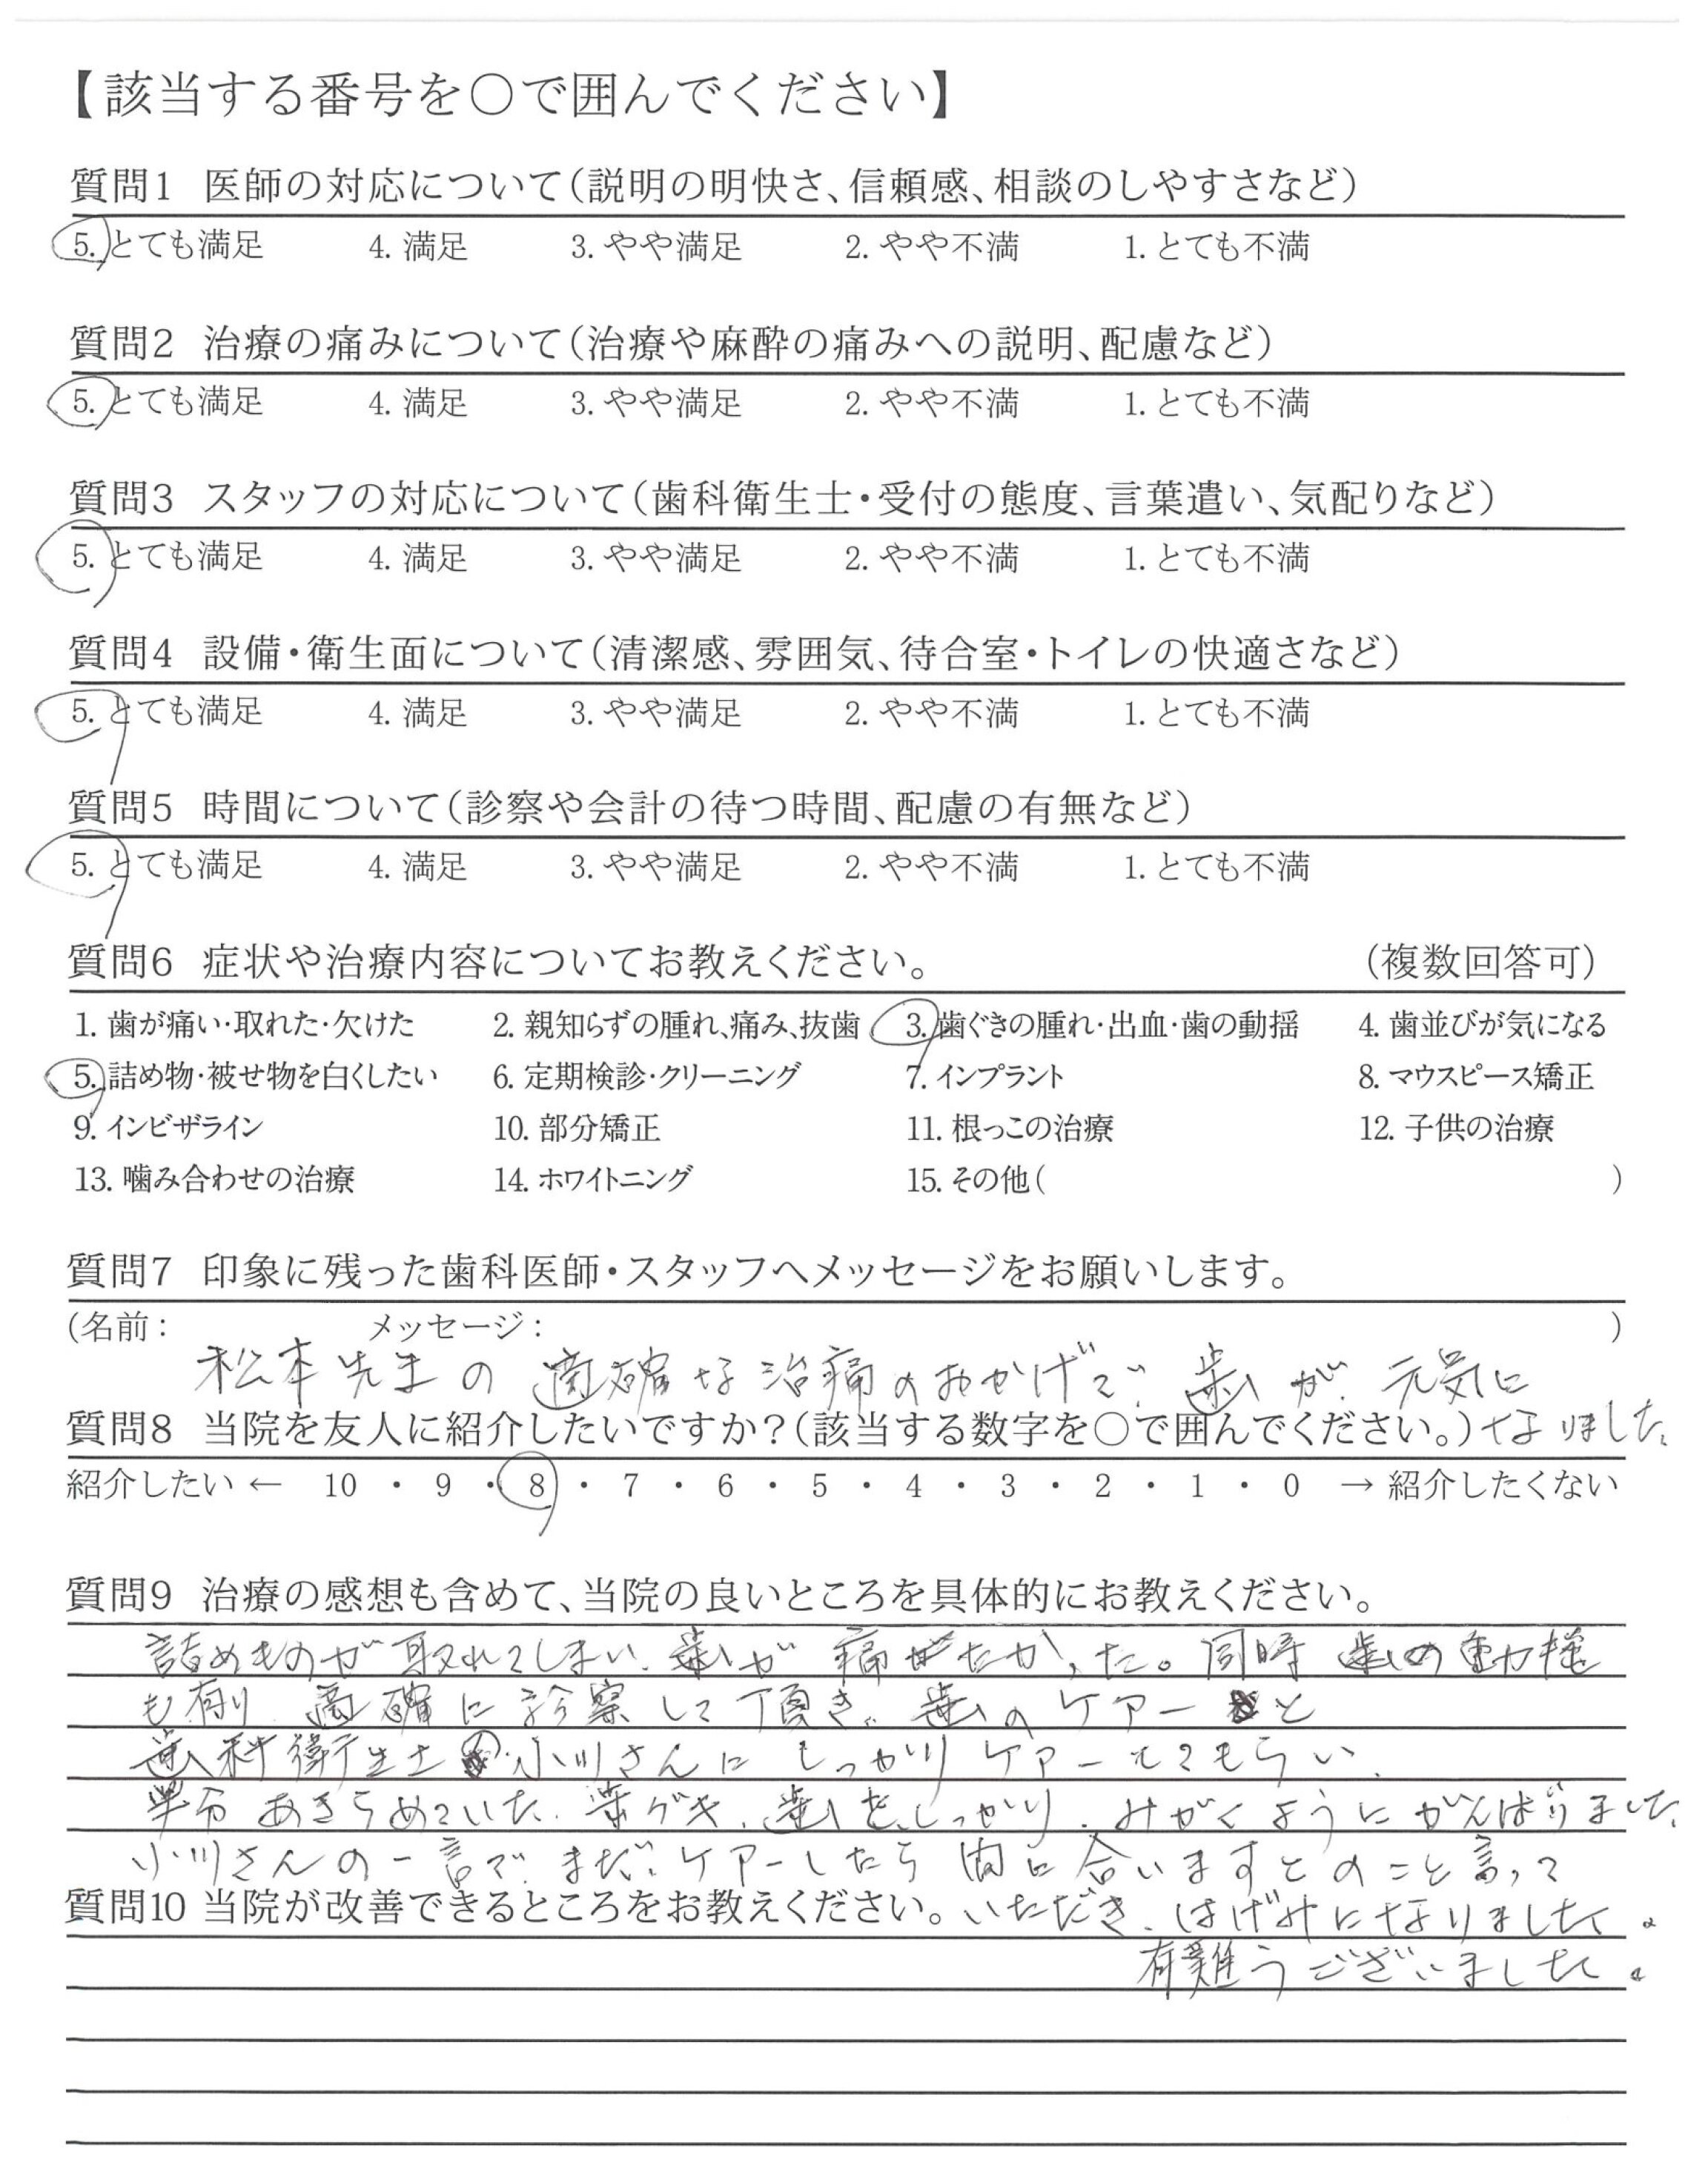 【該当する番号を○で囲んでください】
質問1 医師の対応について(説明の明快さ、信頼感、相談のしやすさなど)
5. とても満足 4. 満足 3. やや満足 2. やや不満 1. とても不満
質問2 治療の痛みについて(治療や麻酔の痛みへの説明、配慮など)
5. とても満足 4. 満足 3. やや満足 2. やや不満 1. とても不満
質問3 スタッフの対応について(歯科衛生士・受付の態度、言葉遣い、気配りなど)
5. とても満足 4. 満足 3. やや満足 2. やや不満 1. とても不満
質問4 設備・衛生面について(清潔感、雰囲気、待合室・トイレの快適さなど)
5. とても満足 4. 満足 3. やや満足 2. やや不満 1. とても不満
質問5 時間について(診察や会計の待つ時間、配慮の有無など)
5. とても満足 4. 満足 3. やや満足 2. やや不満 1. とても不満
質問6 症状や治療内容についてお教えください。 (複数回答可)
1. 歯が痛い・取れた・欠けた 2. 親知らずの腫れ、痛み、抜歯 3. 歯ぐきの腫れ・出血・歯の動揺 4. 歯並びが気になる
5. 詰め物・被せ物を白くしたい 6. 定期検診・クリーニング 7. インプラント 8. マウスピース矯正
9. インビザライン 10. 部分矯正 11. 根っこの治療 12. 子供の治療
13. 噛み合わせの治療 14. ホワイトニング 15. その他( )
質問7 印象に残った歯科医師・スタッフへメッセージをお願いします。
(名前: メッセージ: )
松本先生の適確な治療のおかげで、歯が元気に
なりました。
質問8 当院を友人に紹介したいですか?(該当する数字を○で囲んでください。)
紹介したい ← 10 ・ 9 ・ 8 ・ 7 ・ 6 ・ 5 ・ 4 ・ 3 ・ 2 ・ 1 ・ 0 → 紹介したくない
質問9 治療の感想も含めて、当院の良いところを具体的にお教えください。
詰めものが取れてしまい、歯が痛かった。同時 歯の動揺
も有り 適確に診察して頂き、歯のケアーと
歯科衛生士 小川さんに しっかり ケアーしてもらい、
半分あきらめていた、歯グキ、歯を、しっかり、みがくようにがんばりました。
小川さんの一言で、まだ、ケアーしたら 間に合いますとのこと言って
いただき、はげみになりました。
有難うございました。
質問10 当院が改善できるところをお教えください。